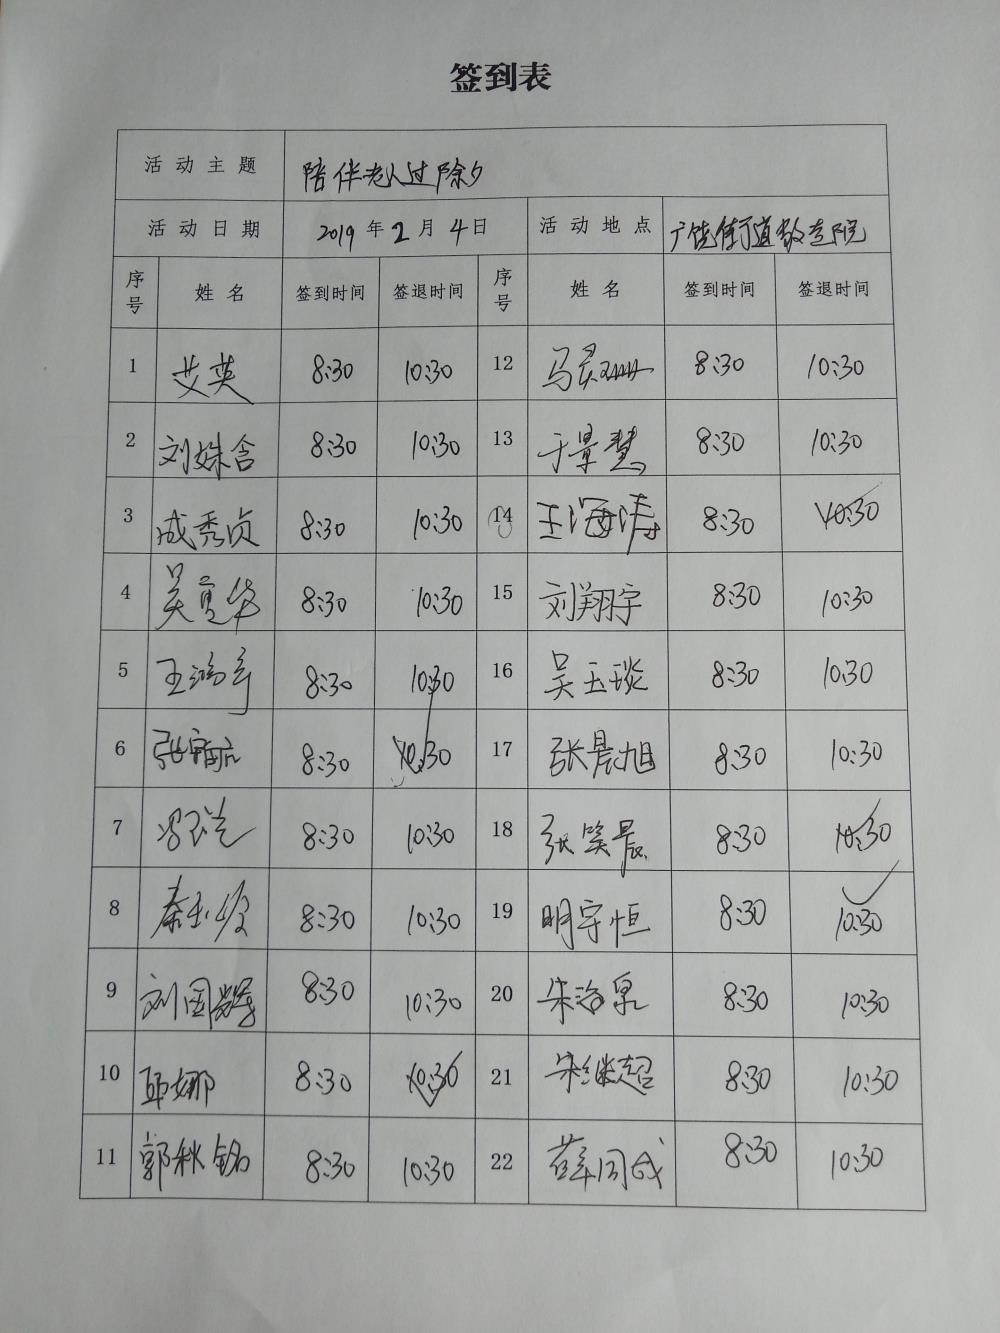 签到表
活动主题 陪伴老人过除夕
活动日期 2019年2月4日 活动地点 广饶街道敬老院
序号 姓名 签到时间 签退时间 序号 姓名 签到时间 签退时间
1 艾英 8:30 10:30 12 马 8:30 10:30
2 刘姝含 8:30 10:30 13 于景慧 8:30 10:30
3 成秀贞 8:30 10:30 14 王海涛 8:30 10:30
4 吴夏华 8:30 10:30 15 刘翔宇 8:30 10:30
5 王 8:30 10:30 16 吴玉琰 8:30 10:30
6 张 8:30 10:30 17 张晨旭 8:30 10:30
7 8:30 10:30 18 张笑晨 8:30 10:30
8 秦玉 8:30 10:30 19 明守恒 8:30 10:30
9 刘国 8:30 10:30 20 朱海泉 8:30 10:30
10 娜 8:30 10:30 21 朱继超 8:30 10:30
11 郭秋铭 8:30 10:30 22 薛同成 8:30 10:30